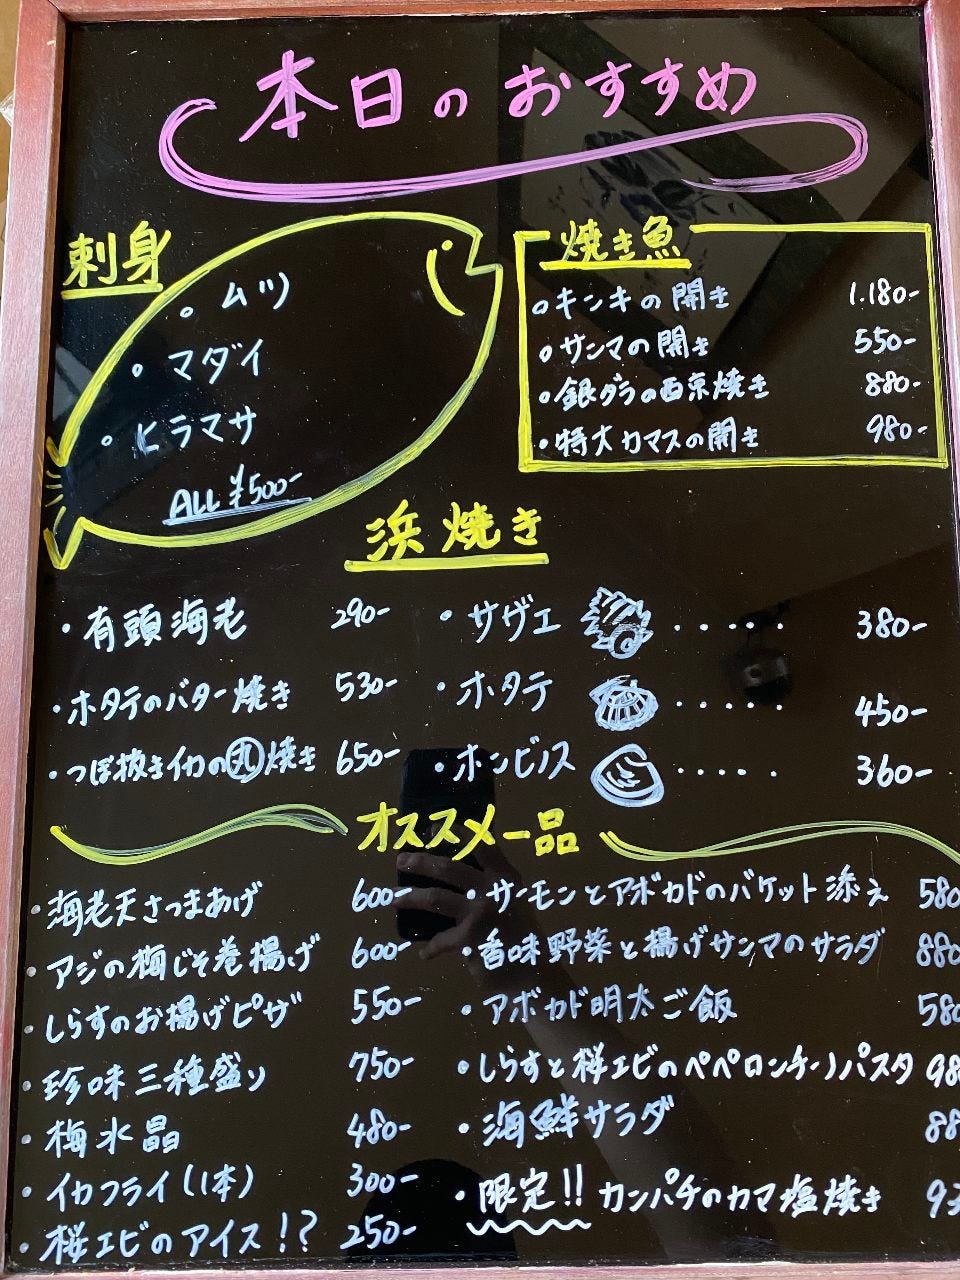 本日のおすすめ
刺身
・ムツ
・マダイ
・ヒラマサ
ALL ¥500-
焼き魚
・キンキの開き 1.180-
・サンマの開き 550-
・銀ダラの西京焼き 880-
・特大カマスの開き 980-
浜焼き
・有頭海老 290-
・ホタテのバター焼き 530-
・つぼ抜きイカの丸焼き 650-
・サザエ ····· 380-
・ホタテ ····· 450-
・ホンビノス ····· 360-
オススメ一品
・海老天さつまあげ 600-
・アジの梅じそ巻揚げ 600-
・しらすのお揚げピザ 550-
・珍味三種盛り 750-
・梅水晶 480-
・イカフライ(1本) 300-
・桜エビのアイス!? 250-
・サーモンとアボカドのバケット添え 580
・香味野菜と揚げサンマのサラダ 880
・アボカド明太ご飯 580
・しらすと桜エビのペペロンチーノパスタ 98
・海鮮サラダ 88
・限定!! カンパチのカマ塩焼き 93